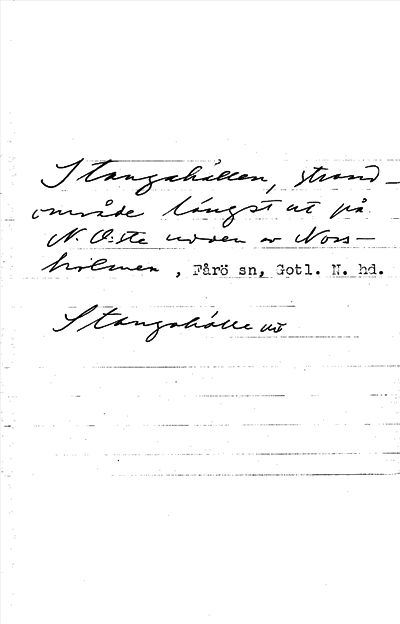 Stangahällen, strand-
område längst ut på
N. O:ste udden av Nors-
holmen, Fårö sn, Gotl. N. hd.
Stangahälle